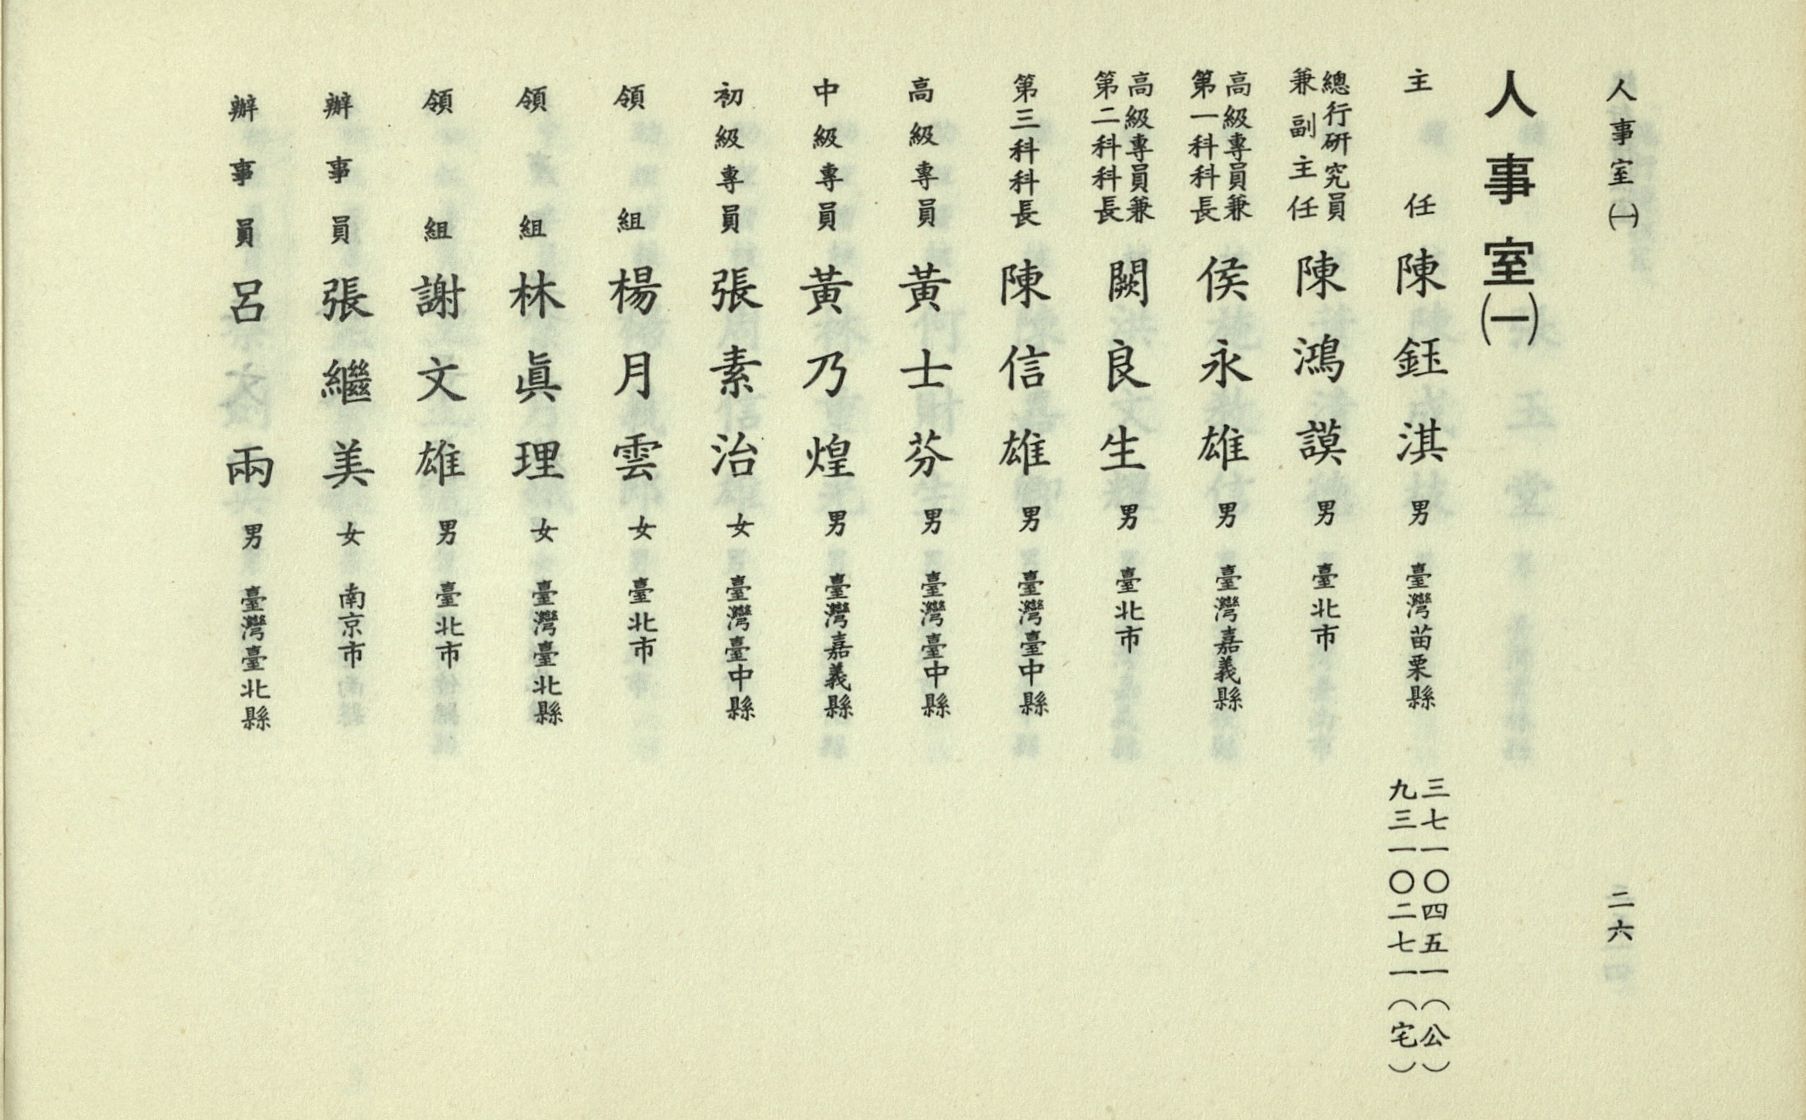 人事室㈠
二六
人事室㈠
主任 陳鈺淇 男 臺灣苗栗縣 三七一〇四五一（公）
九三一〇二七一（宅）
總行研究員兼副主任 陳鴻謨 男 臺北市
高級專員兼第一科科長 侯永雄 男 臺灣嘉義縣
高級專員兼第二科科長 闕良生 男 臺北市
第三科科長 陳信雄 男 臺灣臺中縣
高級專員 黃士芬 男 臺灣臺中縣
中級專員 黃乃煌 男 臺灣嘉義縣
初級專員 張素治 女 臺灣臺中縣
領組 楊月雲 女 臺北市
領組 林眞理 女 臺灣臺北縣
領組 謝文雄 男 臺北市
辦事員 張繼美 女 南京市
辦事員 呂兩 男 臺灣臺北縣